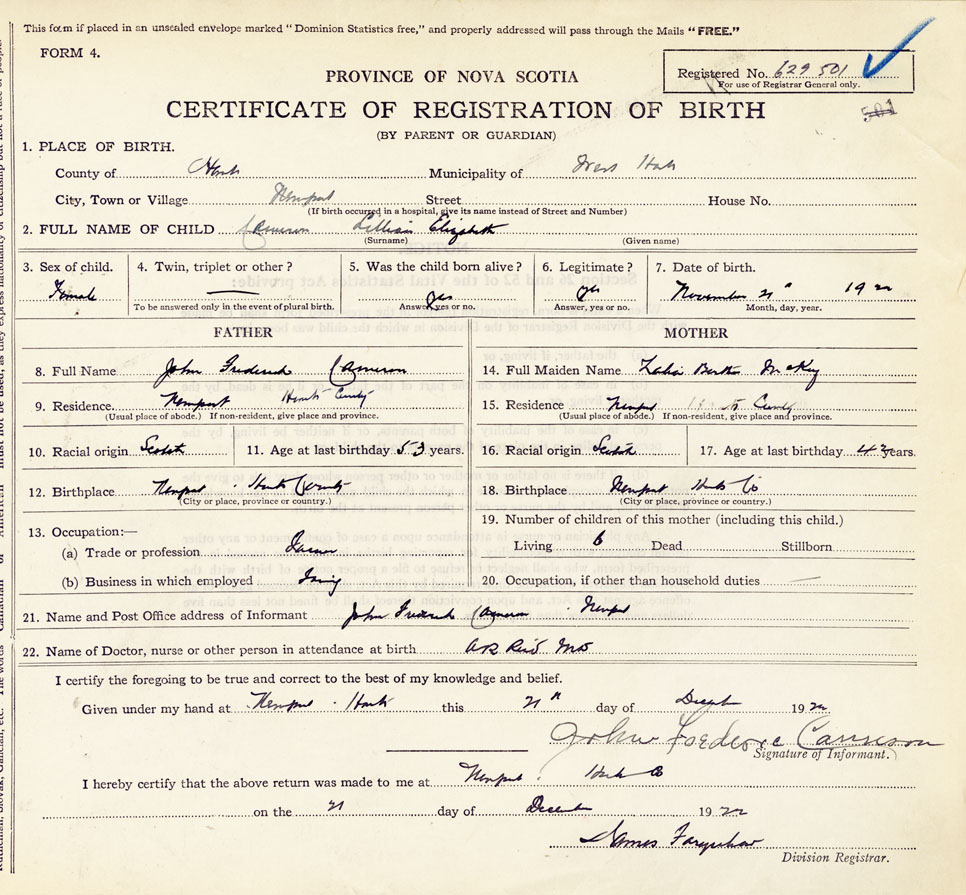 This form if placed in an unsealed envelope marked "Dominion Statistics free," and properly addressed will pass through the Mails "FREE."
FORM 4.
Registered No. 629 501
For use of Registrar General only.
PROVINCE OF NOVA SCOTIA
CERTIFICATE OF REGISTRATION OF BIRTH
501
(BY PARENT OR GUARDIAN)
1. PLACE OF BIRTH.
County of Hants Municipality of West Hants
City, Town or Village Newport Street House No.
(If birth occurred in a hospital, give its name instead of Street and Number)
2. FULL NAME OF CHILD Cameron Lillian Elizabeth
(Surname) (Given name)
3. Sex of child. 4. Twin, triplet or other? 5. Was the child born alive? 6. Legitimate? 7. Date of birth.
Female — yes yes November 21" 1922
To be answered only in the event of plural birth. Answer, yes or no. Answer, yes or no. Month, day, year.
FATHER MOTHER
8. Full Name John Frederick Cameron 14. Full Maiden Name Bertha McKay
9. Residence Newport Hants County 15. Residence Newport Hants County
(Usual place of abode.) If non-resident, give place and province. (Usual place of abode.) If non-resident, give place and province.
10. Racial origin Scotch 11. Age at last birthday 53 years. 16. Racial origin Scotch 17. Age at last birthday years.
12. Birthplace Newport Hants County 18. Birthplace Newport Hants Co
(City or place, province or country.) (City or place, province or country.)
13. Occupation:—
19. Number of children of this mother (including this child.)
(a) Trade or profession Farmer
Living 6 Dead Stillborn
(b) Business in which employed 20. Occupation, if other than household duties —
21. Name and Post Office address of Informant John Frederick Cameron Newport
22. Name of Doctor, nurse or other person in attendance at birth Reid MD
I certify the foregoing to be true and correct to the best of my knowledge and belief.
Given under my hand at Newport Hants this 21" day of December 1922
John Frederic Cameron
Signature of Informant.
I hereby certify that the above return was made to me at Newport Hants Co
on the 21 day of December 1922
James Farquhar
Division Registrar.